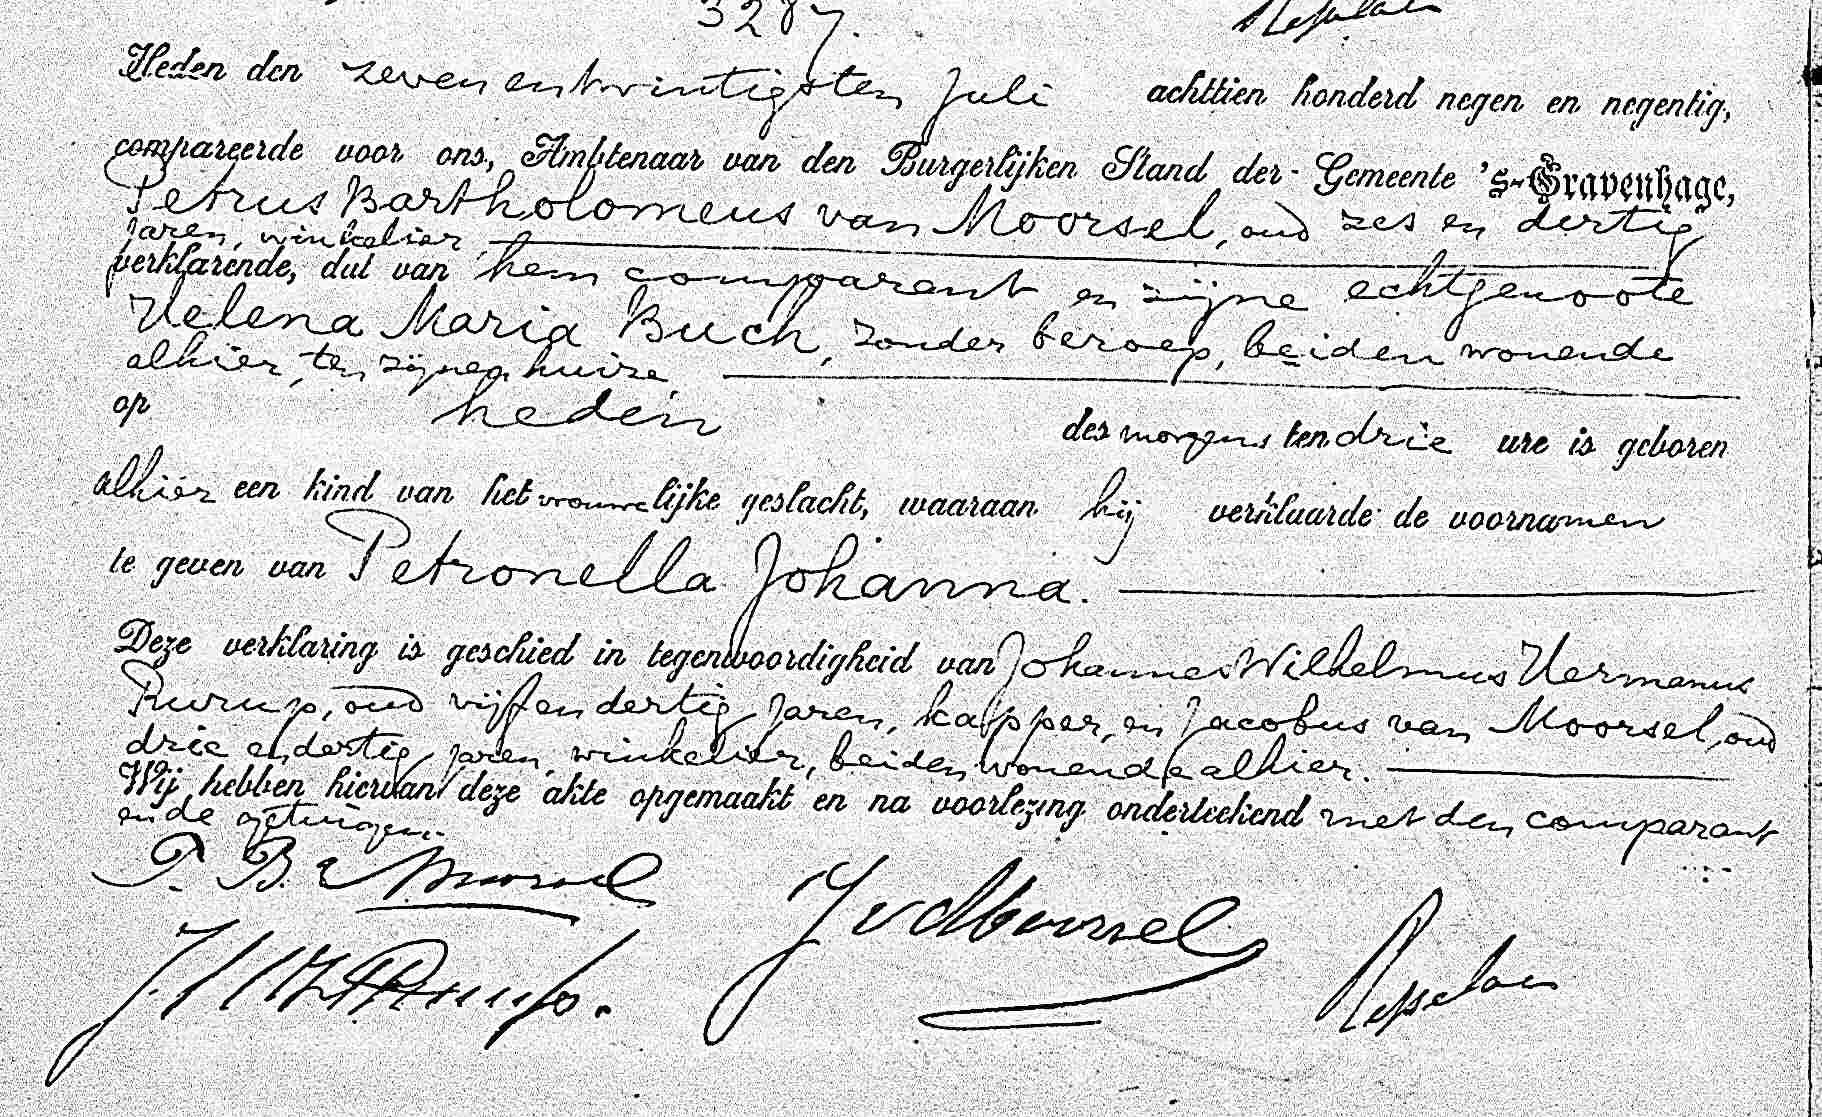 3287.
Heden den zeven en twintigsten Juli achttien honderd negen en negentig,
compareerde voor ons, Ambtenaar van den Burgerlijken Stand der Gemeente 's-Gravenhage,
Petrus Bartholomeus van Moorsel, oud zes en dertig
jaren, winkelier
verklarende, dat van hem comparant en zijne echtgenoote
Helena Maria Buch, zonder beroep, beiden wonende
alhier, ten zijnen huize,
op heden des morgens ten drie ure is geboren
alhier een kind van het vrouwelijke geslacht, waaraan hij verklaarde de voornamen
te geven van Petronella Johanna.
Deze verklaring is geschied in tegenwoordigheid van Johannes Wilhelmus Hermanus
Rurup, oud vijf en dertig jaren, kapper, en Jacobus van Moorsel, oud
drie en dertig jaren, winkelier, beiden wonende alhier.
Wij hebben hiervan deze akte opgemaakt en na voorlezing onderteekend met den comparant
en de getuigen.
P. B. v Moorsel
J v Moorsel
J. W H Rurup.